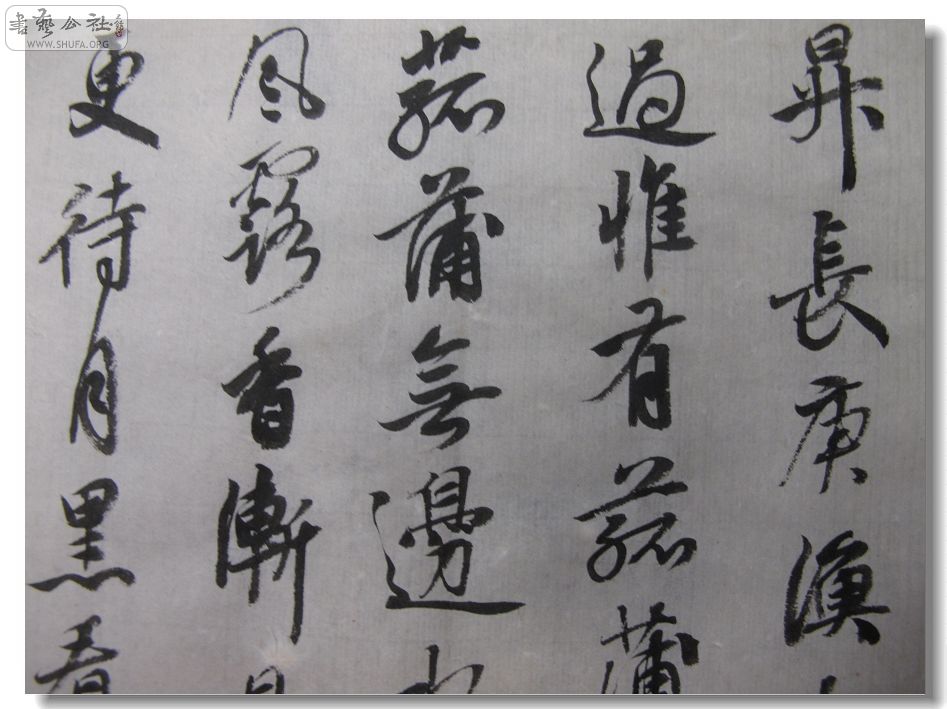 書藝公社
WWW.SHUFA.ORG
昇長庚漁
過惟有菰蒲
菰蒲無邊水
風露香漸
更待月黑看